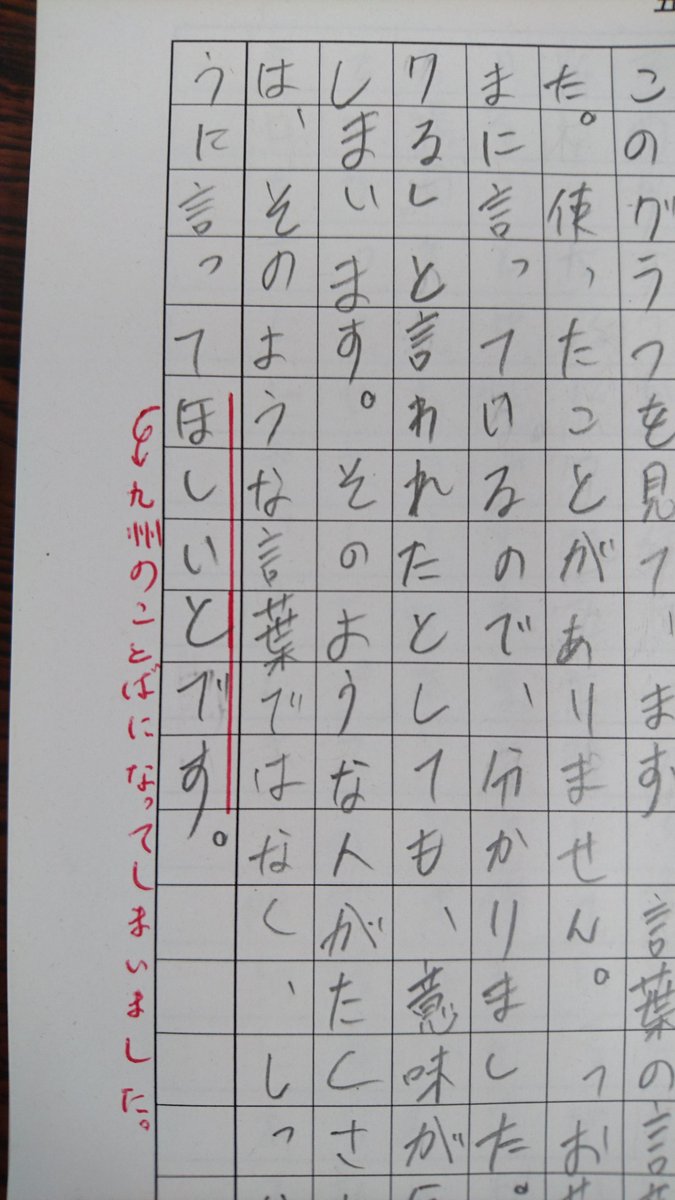 このグラフを見て、まず　言葉の言
た。使ったことがありません。「お
まに言っているので、分かりました。
ワるしと言われたとしても、意味が
しまいます。そのような人が、たくさ
は、そのような言葉ではなく、しっ
うに言ってほしいとです。
九州のことばになってしまいました。